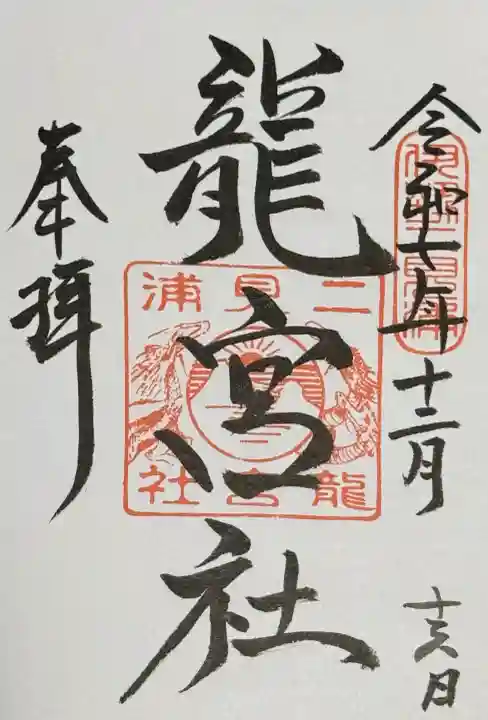 令和七年十二月
十六日
龍宮社
奉拝
二見浦
龍宮社
伊勢二見浦